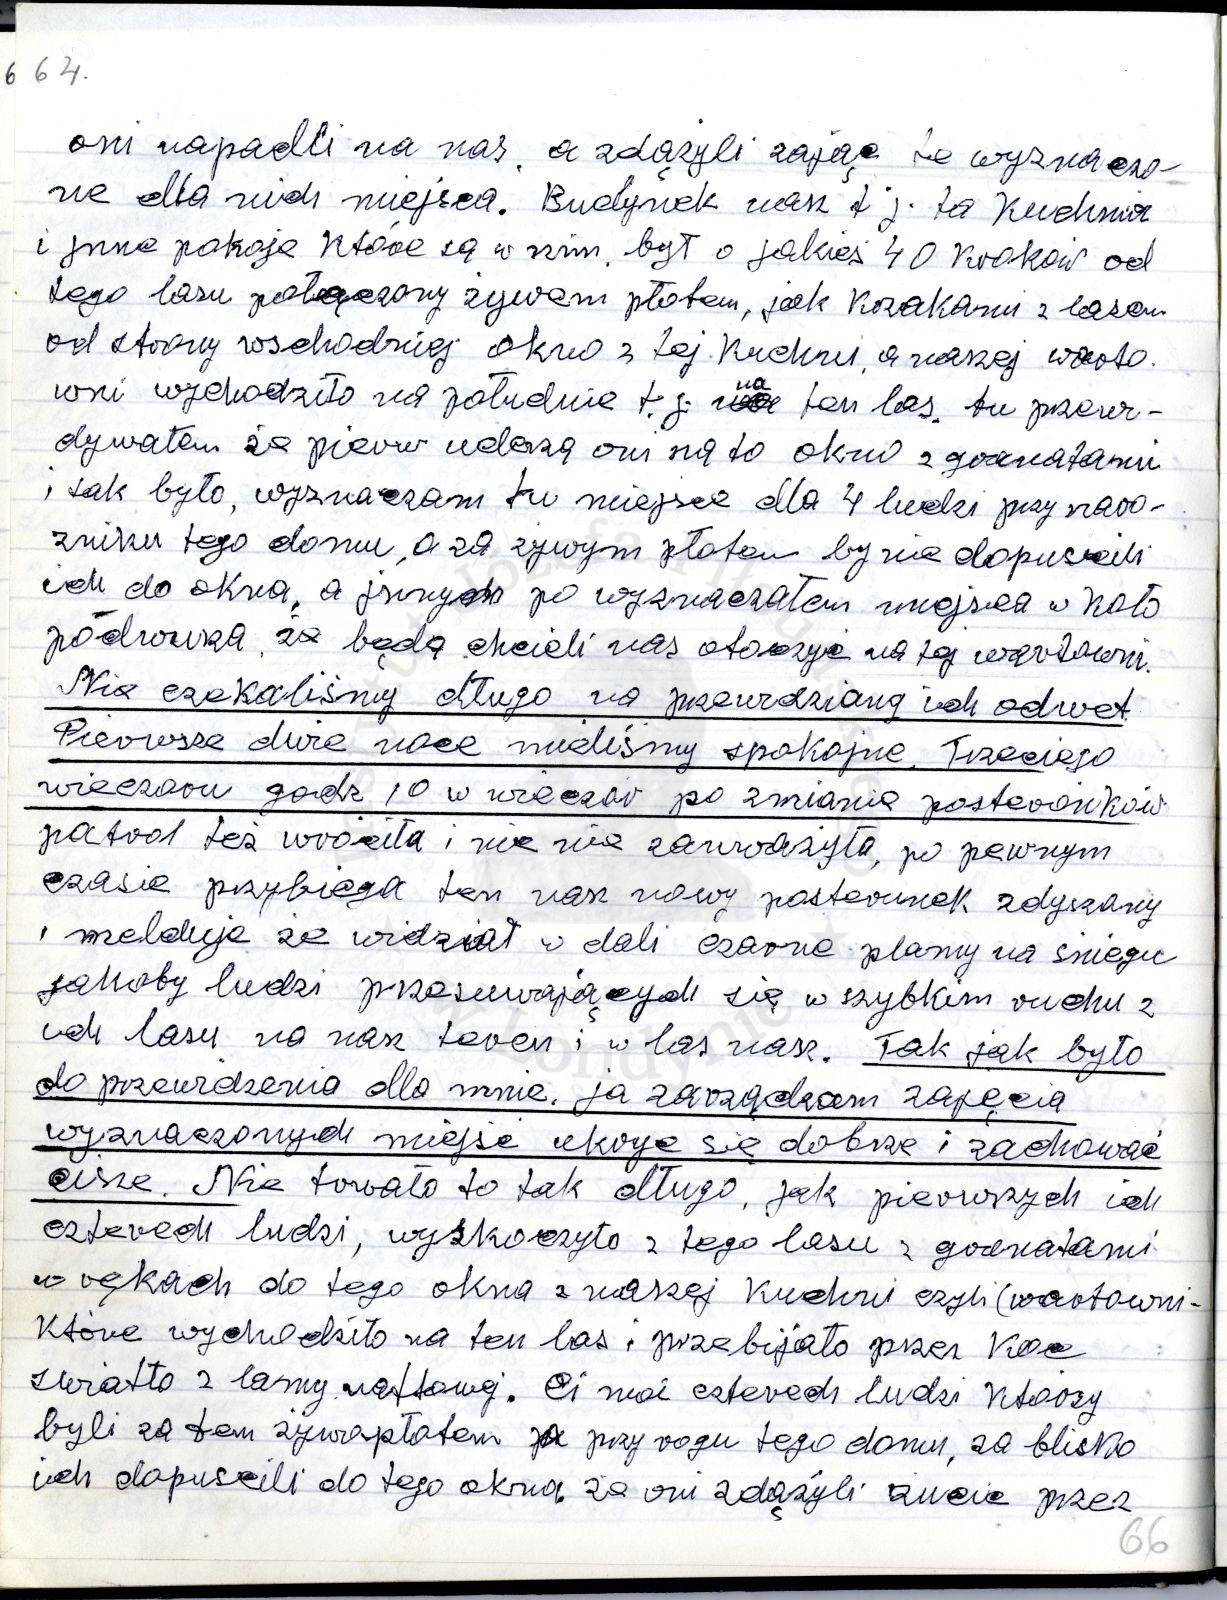 6 64.
oni napadli na nas, a zdążyli zając te wyznaczo-
ne dla nich miejsca. Budynek nasz t j. ta Kuchnia
i jnne pokoje które są w nim, był o jakieś 40 kroków od
tego lasu połączony żywem płotem, jak krzakami z lasem
od strony wschodniej okno z tej Kuchni, a naszej warto.
wni wychodziło na południe t. j. na ten las. tu przewi-
dywałem że pierw uderzą oni na to okno z granatami
i tak było, wyznaczam tu miejsce dla 4 ludzi przy naro-
żniku tego domu, a za żywym płotem by nie dopuścili
ich do okna, a jnnych po wyznaczałem miejsca w koło
podwurza, że będą chcieli nas otoczyć na tej wartowni.
Nie czekaliśmy długo na przewidzianą ich odwet
Pierwsze dwie noce mieliśmy spokojne. Trzeciego
wieczoru godz 10 w wieczór po zmianie posterónków
patrol też wróciła i nic nie zauważyła, po pewnym
czasie przybiega ten nasz nowy posterunek zdyszany
i melduje że widział w dali czarne plamy na śniegu
jakoby ludzi przesuwających się w szybkim ruchu z
ich lasu na nasz teren i w las nasz. Tak jak było
do przewidzenia dla mnie. ja zarządzam zajęcia
wyznaczonych miejsc ukryc się dobrze i zachować
cisze. Nie trwało to tak długo, jak pierwszych ich
czterech ludzi, wyskoczyło z tego lasu z granatami
w rękach do tego okna z naszej Kuchni czyli (wartowni-
Które wychodziło na ten las i przebijało przez Koc
światło z lamy naftowej. Ci moi czterech ludzi którzy
byli za tem żywapłotem przy rogu tego domu, za blisko
ich dopuscili do tego okna, że oni zdążyli żucic przez
66